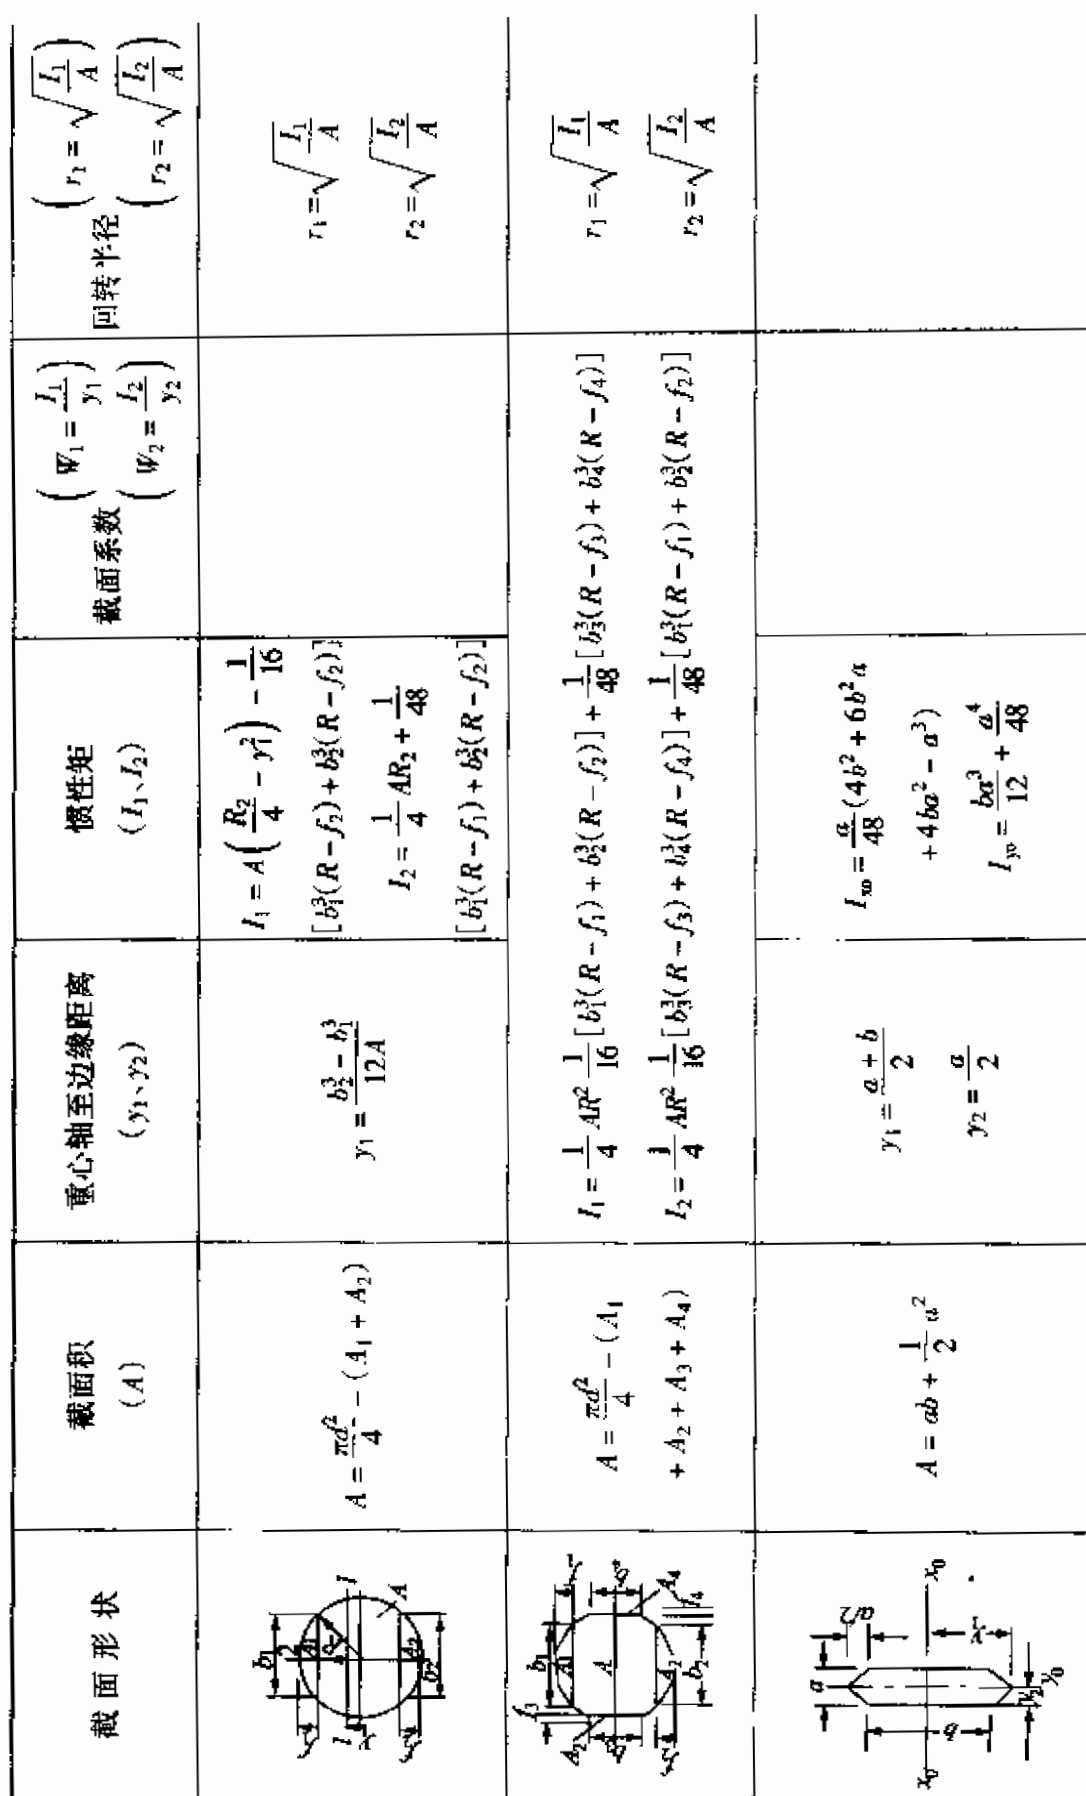 截面形状
截面积
(A)
重心轴至边缘距离
(y₁、y₂)
惯性矩
(I₁、I₂)
截面系数 (W₁ = I₁/y₁)
(W₂ = I₂/y₂)
回转半径 (r₁ = √(I₁/A))
(r₂ = √(I₂/A))
b₁
2
A₁
I
A
A₂
b₂
A = πd²/4 - (A₁ + A₂)
y₁ = (b₂³ - b₁³)/12A
I₁ = A(R₂/4 - y₁²) - 1/16
[b₁³(R - f₂) + b₂³(R - f₂)]
I₂ = 1/4 AR₂ + 1/48
[b₁³(R - f₁) + b₂³(R - f₂)]
r₁ = √(I₁/A)
r₂ = √(I₂/A)
b₁
f₃
A
A₂
A₄
f₄
b₂
A = πd²/4 - (A₁
+ A₂ + A₃ + A₄)
I₁ = 1/4 AR² 1/16 [b₁³(R - f₁) + b₂³(R - f₂)] + 1/48 [b₃³(R - f₃) + b₄³(R - f₄)]
I₂ = 1/4 AR² 1/16 [b₃³(R - f₃) + b₄³(R - f₄)] + 1/48 [b₁³(R - f₁) + b₂³(R - f₂)]
r₁ = √(I₁/A)
r₂ = √(I₂/A)
a
a/2
b
x₀
x₀
y₁
y₂
y₀
A = ab + 1/2 a²
y₁ = (a + b)/2
y₂ = a/2
Iₓ₀ = a/48 (4b² + 6b²a
+ 4ba² - a³)
I_y₀ = ba³/12 + a⁴/48